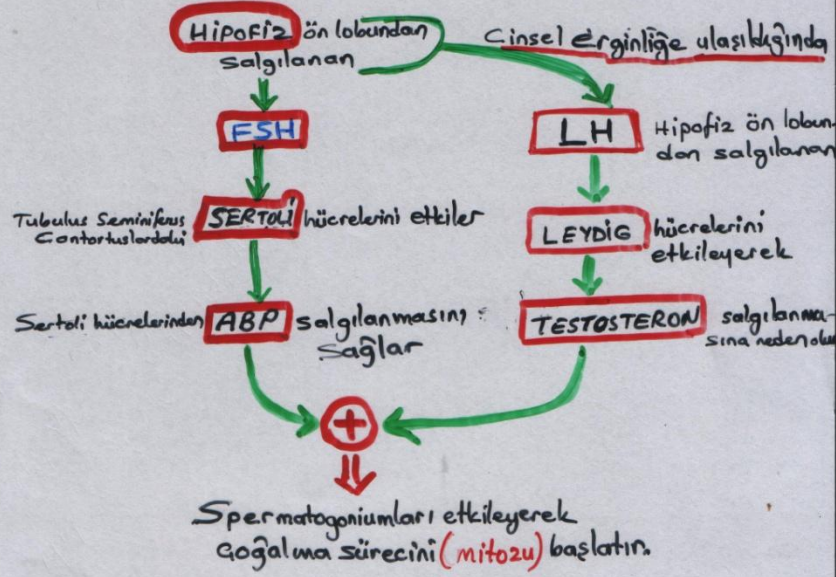 HİPOFİZ ön lobundan
salgılanan
Cinsel erginliğe ulaşıldığında
FSH
LH
Hipofiz ön lobun-
dan salgılanan
Tubulus Seminiferus
Contortuslardaki
SERTOLİ hücrelerini etkiler
LEYDİG hücrelerini
etkileyerek
Sertoli hücrelerinden ABP salgılanmasını
sağlar
TESTOSTERON salgılanma-
sına neden olur
+
Spermatogoniumları etkileyerek
çoğalma sürecini (mitozu) başlatır.